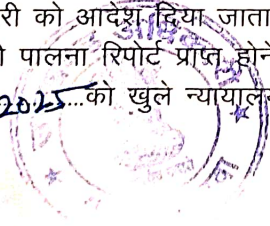 री को आदेश दिया जाता
पालना रिपोर्ट प्राप्त होने
2025...को खुले न्यायाल